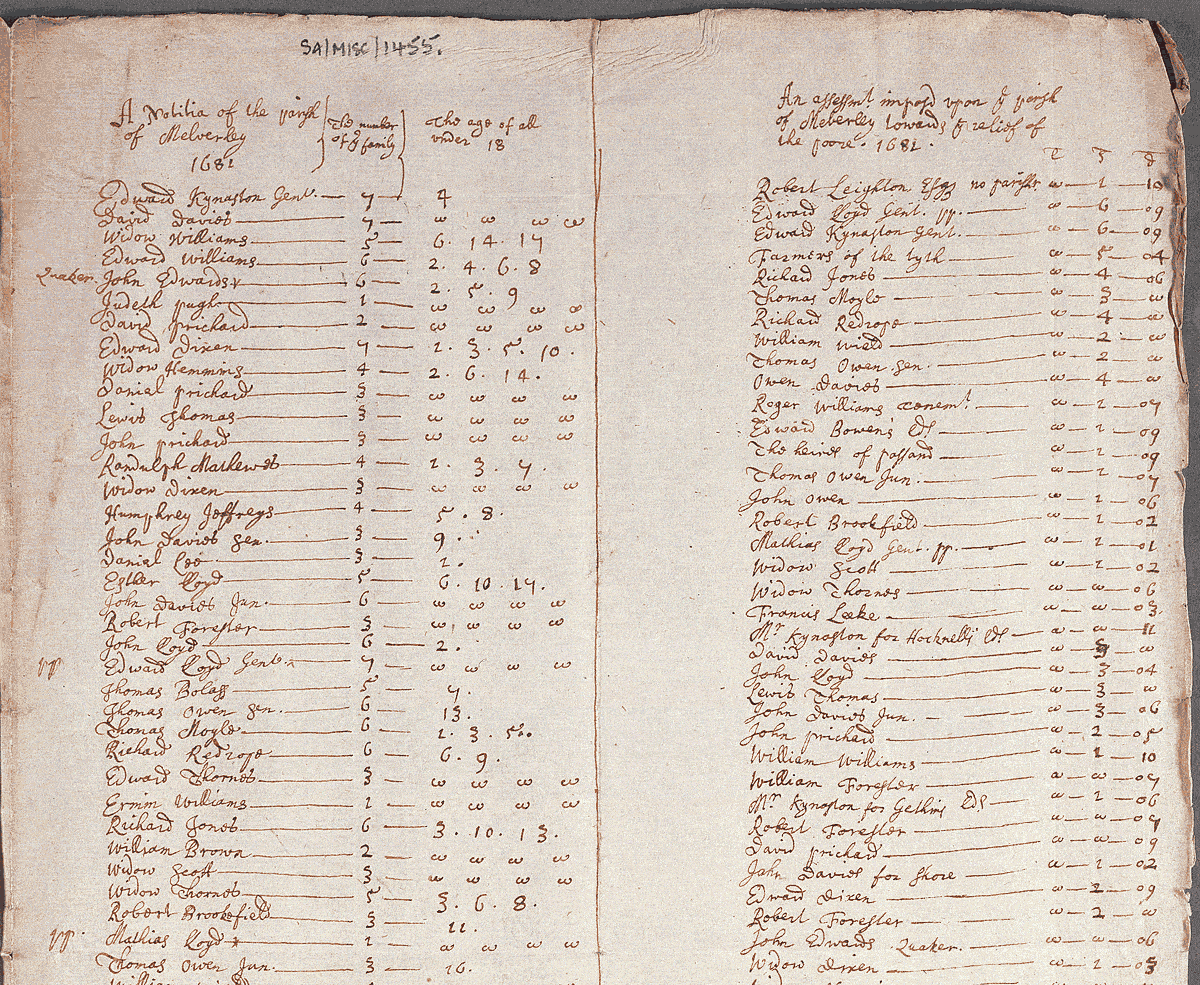 SA/MISC/1455.
A Notitia of the parish
of Melverley
1681
The number
of ye family
The age of all
under 18
Edward Kynaston Gent. — 7 — 4
David Davies — 7 — ω ω ω ω
Widow Williams — 5 — 6. 14. 17
Edward Williams — 6 — 2. 4. 6. 8
Quaker. John Edwards — 6 — 2. 5. 9
Judeth pugh — 1 — ω ω ω ω
David prichard — 2 — ω ω ω ω
Edward Dixen — 7 — 1. 3. 5. 10.
Widow Hemmins — 4 — 2. 6. 14.
Daniel prichard — 3 — ω ω ω ω
Lewis Thomas — 3 — ω ω ω ω
John prichard — 3 — ω ω ω ω
Randulph Mathewes — 4 — 1. 3. 7.
Widow Dixen — 3 — ω ω ω ω
Humphrey Jeffreys — 4 — 5. 8.
John Davies sen. — 3 — 9.
Daniel Lee — 3 — 1.
Esther lloyd — 5 — 6. 10. 14.
John Davies Jun. — 6 — ω ω ω ω
Robert Forester — 3 — ω ω ω ω
John lloyd — 6 — 2.
pp Edward lloyd Gent. — 7 — ω ω ω ω
Thomas Bolass — 5 — 7.
Thomas Owen sen. — 6 — 13.
Thomas Moyle — 6 — 1. 3. 5.
Richard Redrope — 6 — 6. 9.
Edward Thornes — 3 — ω ω ω ω
Ermin Williams — 1 — ω ω ω ω
Richard Jones — 6 — 3. 10. 13.
William Brown — 2 — ω ω ω ω
Widow Scott — 3 — ω ω ω ω
Widow Thornes — 5 — 3. 6. 8.
Robert Brookefield — 3 — 11.
pp. Mathias lloyd — 1 — ω ω ω ω
Thomas Owen Jun. — 3 — 16.
An assessmt. imposd upon ye parish
of Melverley towards ye relief of
the poore. 1681.
Robert Leighton Esqr no parishr ω — 1 — 10
Edward lloyd Gent. pp. — ω — 6 — 09
Edward Kynaston Gent. — ω — 6 — 09
Farmers of the tyth — ω — 5 — 04
Richard Jones — ω — 4 — 06
Thomas Moyle — ω — 3 — ω
Richard Redrope — ω — 4 — ω
William Wield — ω — 2 — ω
Thomas Owen sen. — ω — 2 — ω
Owen Davies — ω — 4 — ω
Roger Williams tenemt. — ω — 1 — 07
Edward Bowen's — ω — 1 — 09
The heires of passand — ω — 1 — 09
Thomas Owen Jun. — ω — 1 — 07
John Owen — ω — 1 — 06
Robert Brookfield — ω — 1 — 02
Mathias lloyd Gent. pp. — ω — 1 — 01
Widow Scott — ω — 1 — 02
Widow Thornes — ω — ω — 06
Francis Leeke — ω — ω — 03
Mr Kynaston for Hocknells — ω — ω — 11
David Davies — ω — — ω
John lloyd — ω — 3 — 04
Lewis Thomas — ω — 3 — ω
John Davies Jun. — ω — 3 — 06
John prichard — ω — 2 — 05
William Williams — ω — 1 — 10
William Forester — ω — ω — 07
Mr Kynaston for Gethins — ω — 1 — 06
Robert Forester — ω — ω — 07
David prichard — ω — ω — 09
John Davies for Shore — ω — 1 — 02
Edward Dixen — ω — 2 — 09
Robert Forester — ω — 2 — ω
John Edwards Quaker. — ω — ω — 06
Widow Dixen — ω — 1 — 03